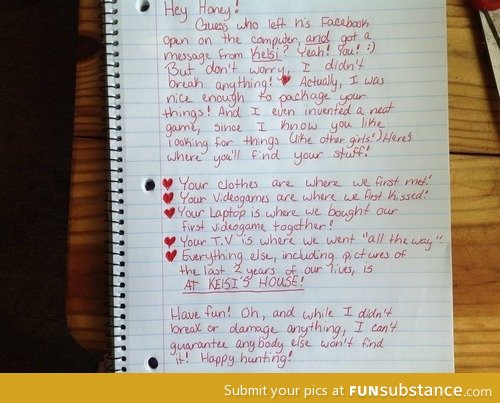 Hey Honey!
Guess who left his Facebook
open on the computer, and got a
message from Kelsi? Yeah! You! :)
But don't worry, I didn't
break anything! Actually, I was
nice enough to package your
things! And I even invented a neat
game, since I know you like
looking for things (like other girls!) Here's
where you'll find your stuff!
Your clothes are where we first met!
Your videogames are where we first kissed!
Your Laptop is where we bought our
first videogame together!
Your T.V is where we went "all the way"
Everything else, including pictures of
the last 2 years of our lives, is
AT KELSI'S HOUSE!
Have fun! Oh, and while I didn't
break or damage anything, I can't
guarantee anybody else won't find
it! Happy hunting!
Submit your pics at FUNsubstance.com